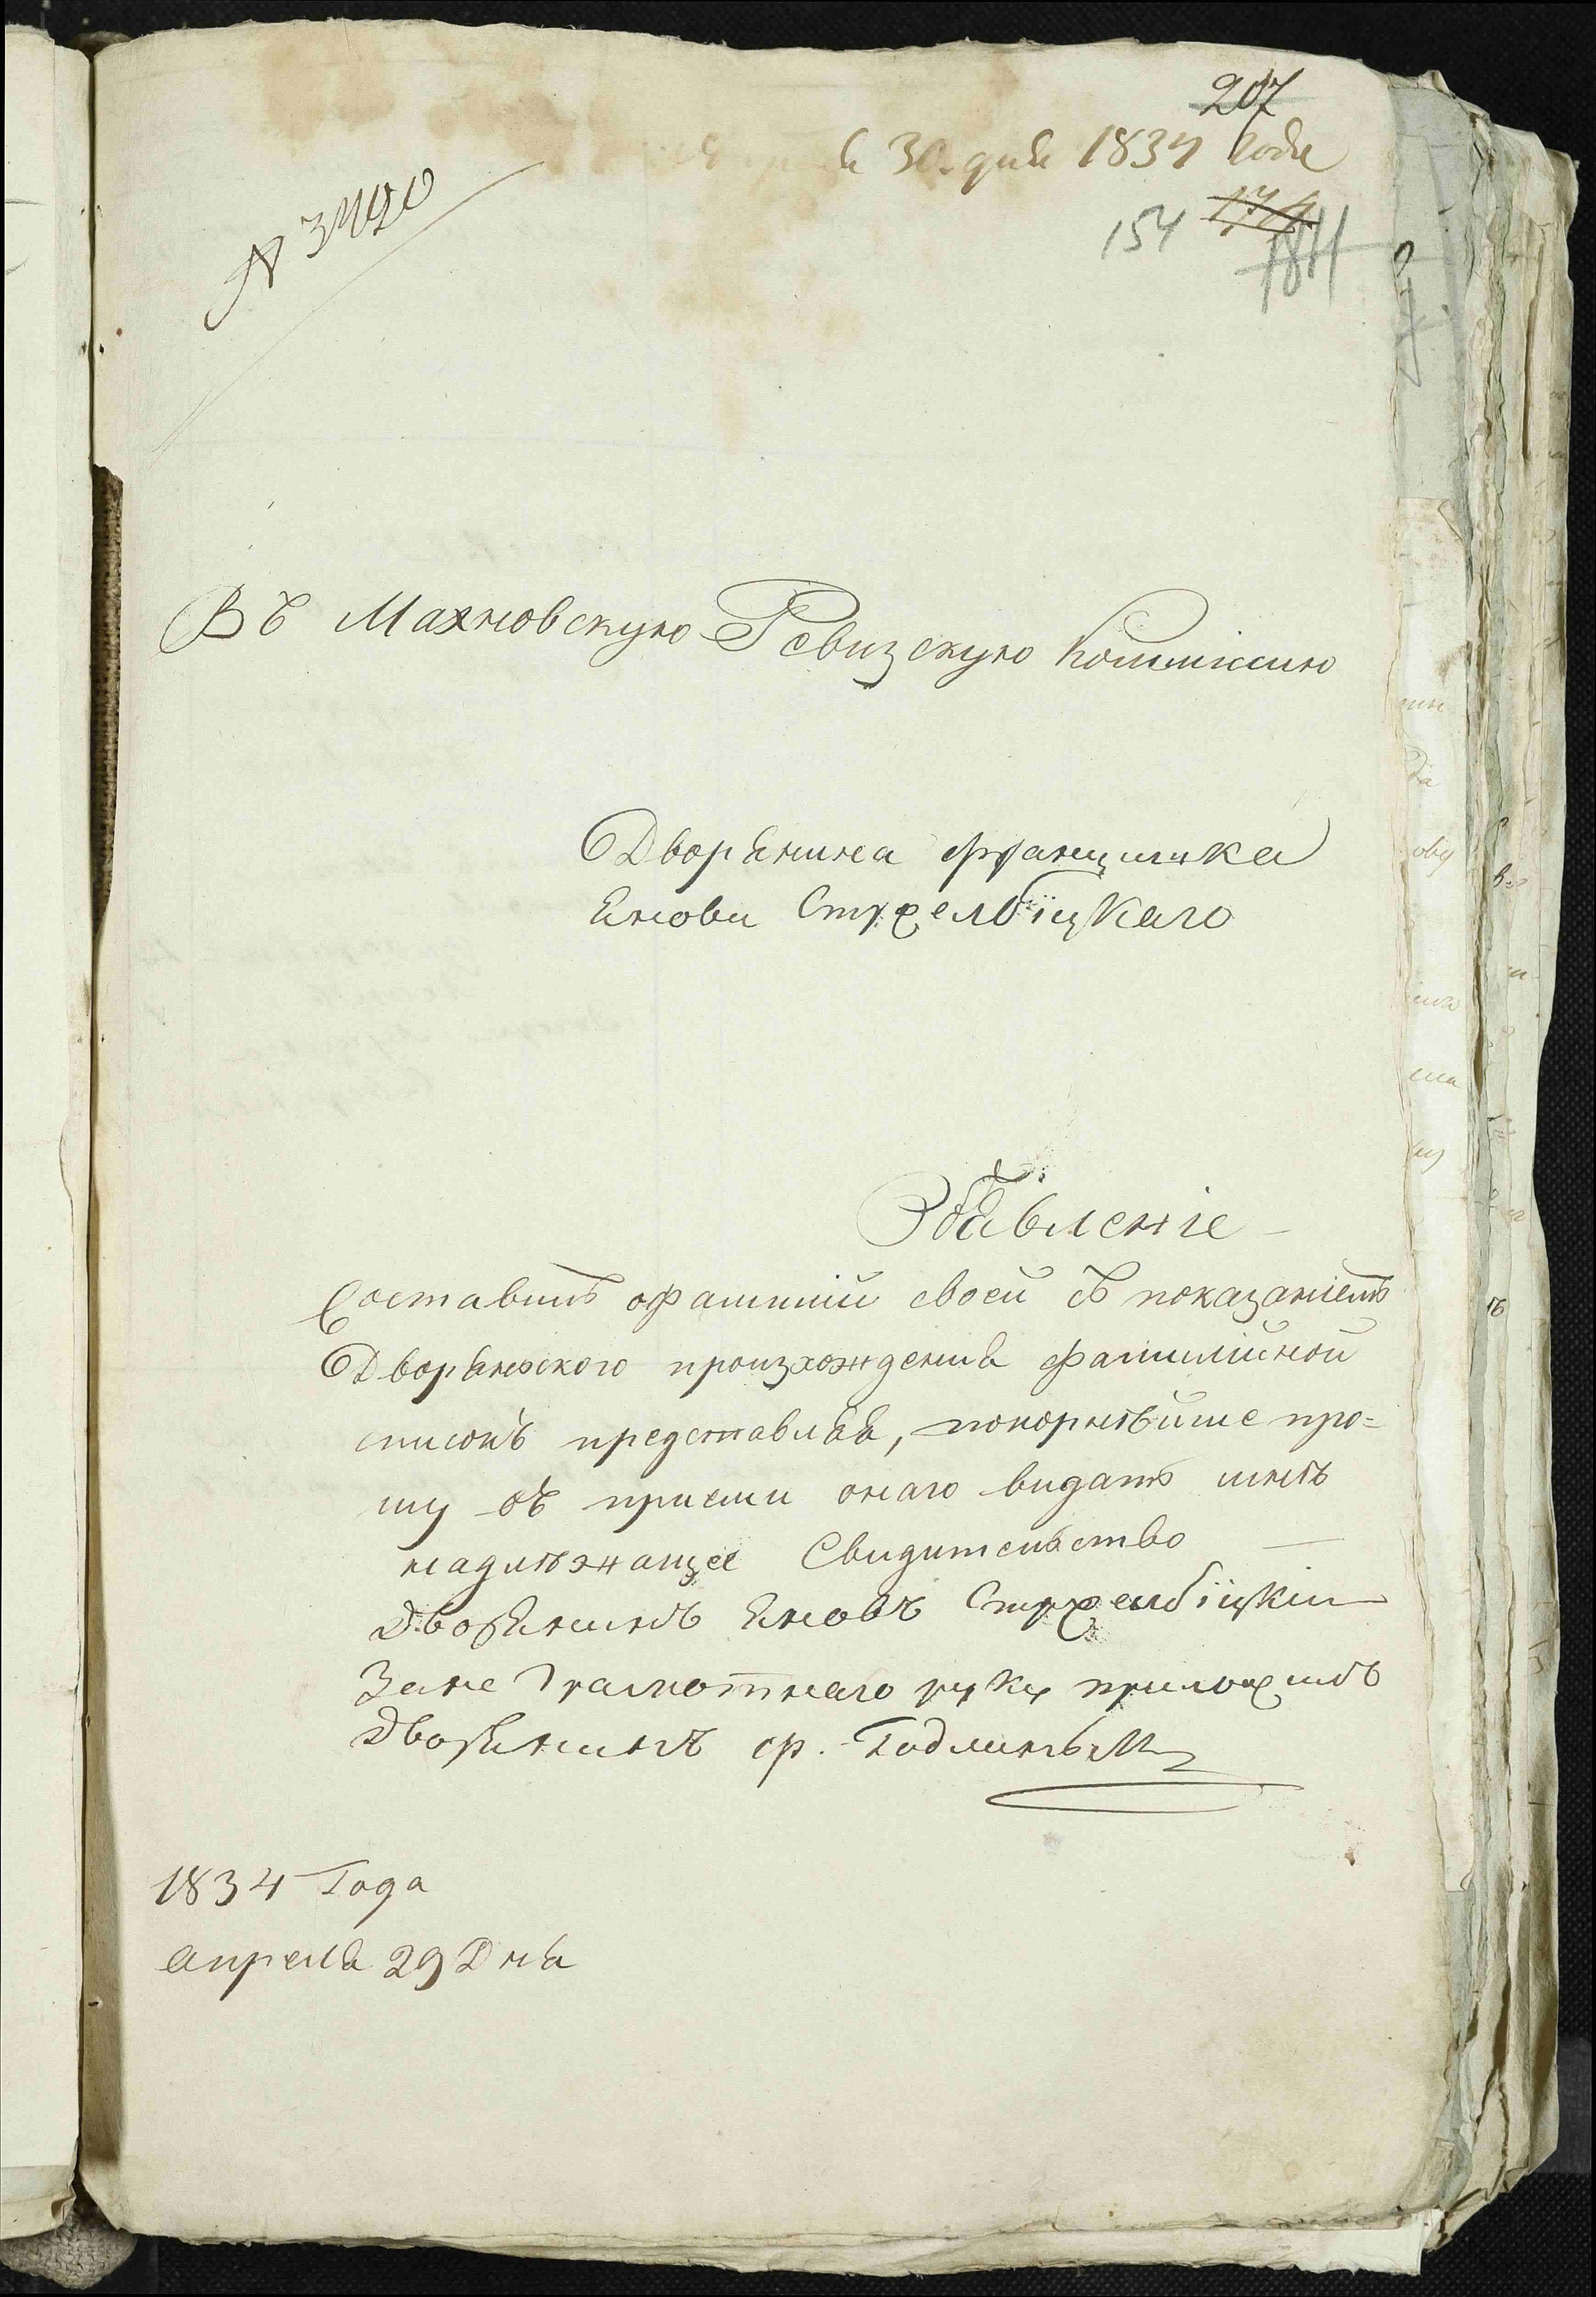 207
30. дня 1834 года
№ 3490
154 174
184
Въ Махновскую Ревизскую Коммісию
Дворянина Францишка
Янова Стржелбіцкаго
Обявленіе
Составивъ о фамиліи своей съ показаніемъ
Дворянского произхожденія фамилійной
списокъ представляя, покорнѣйше про=
шу въ приеми онаго видать мнѣ
надлѣжащее Свидительство
Дворянинъ Яновъ Стржелбіцкій
За не Грамотнаго руку приложилъ
Дворянинъ Ф.
1834 Года
Апреля 29 Дня